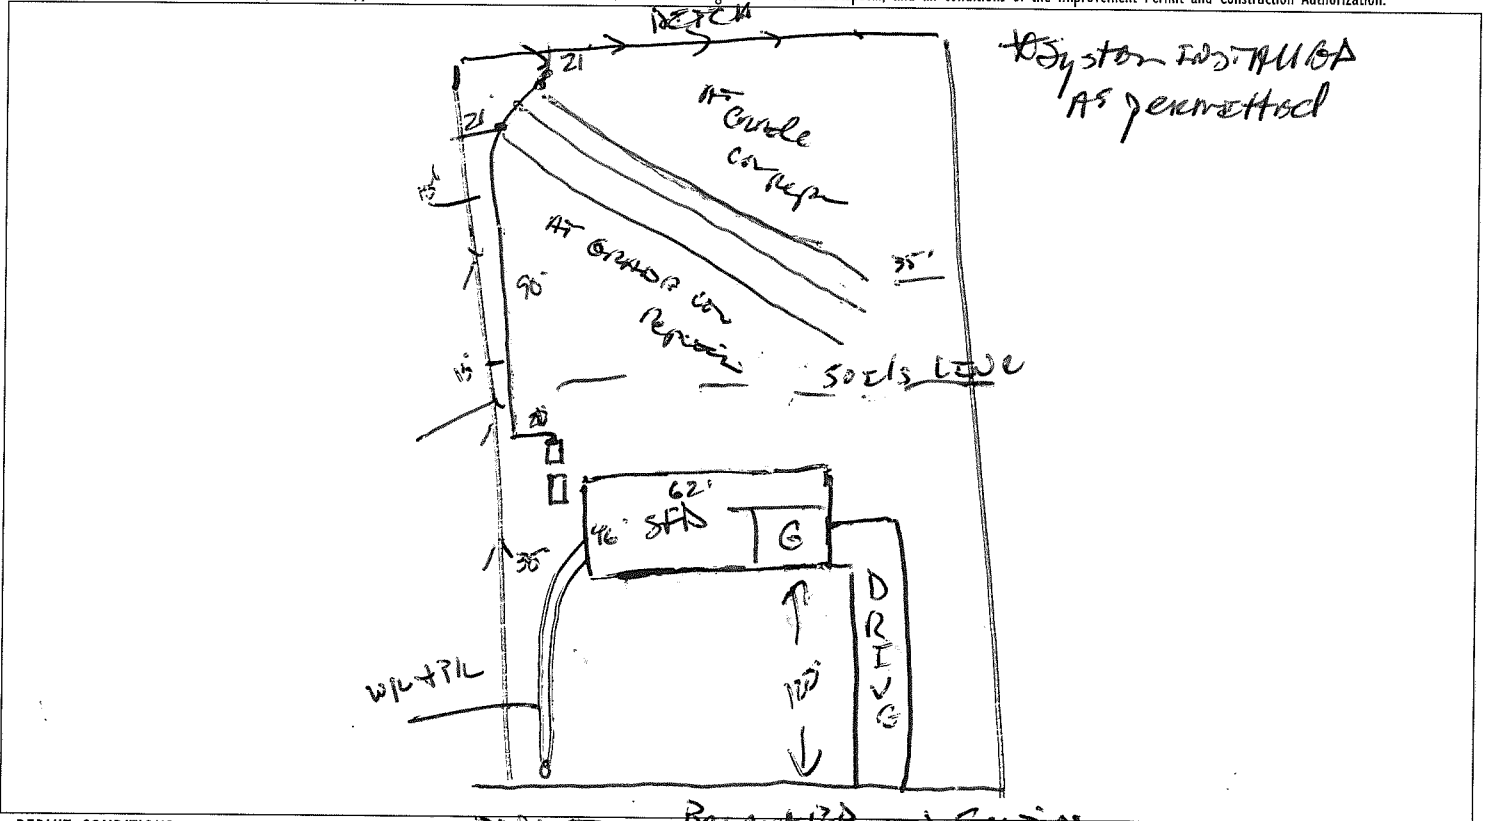 and all conditions of the Improvement Permit and Construction Authorization.
DITCH
System INSTALLED
As permitted
21'
21'
15'
AT
Grade
Con
Repair
AT GRADE
35'
90'
15'
SOILS LINE
20'
62'
46' SFD
G
35'
DRIVE
W/L + P/L